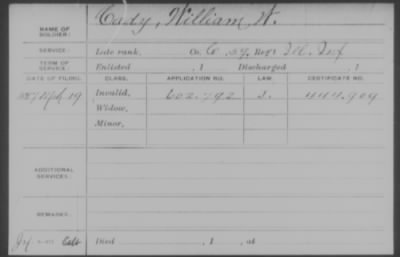 NAME OF SOLDIER: Cady, William W.
SERVICE: Late rank, Co. 27, Reg't Ill. Inf
TERM OF SERVICE: Enlisted , 1 Discharged , 1
DATE OF FILING. CLASS. APPLICATION NO. LAW. CERTIFICATE NO.
19 Invalid, 602.792 444.909
Widow,
Minor,
ADDITIONAL SERVICES:
REMARKS:
Died , 1 , at